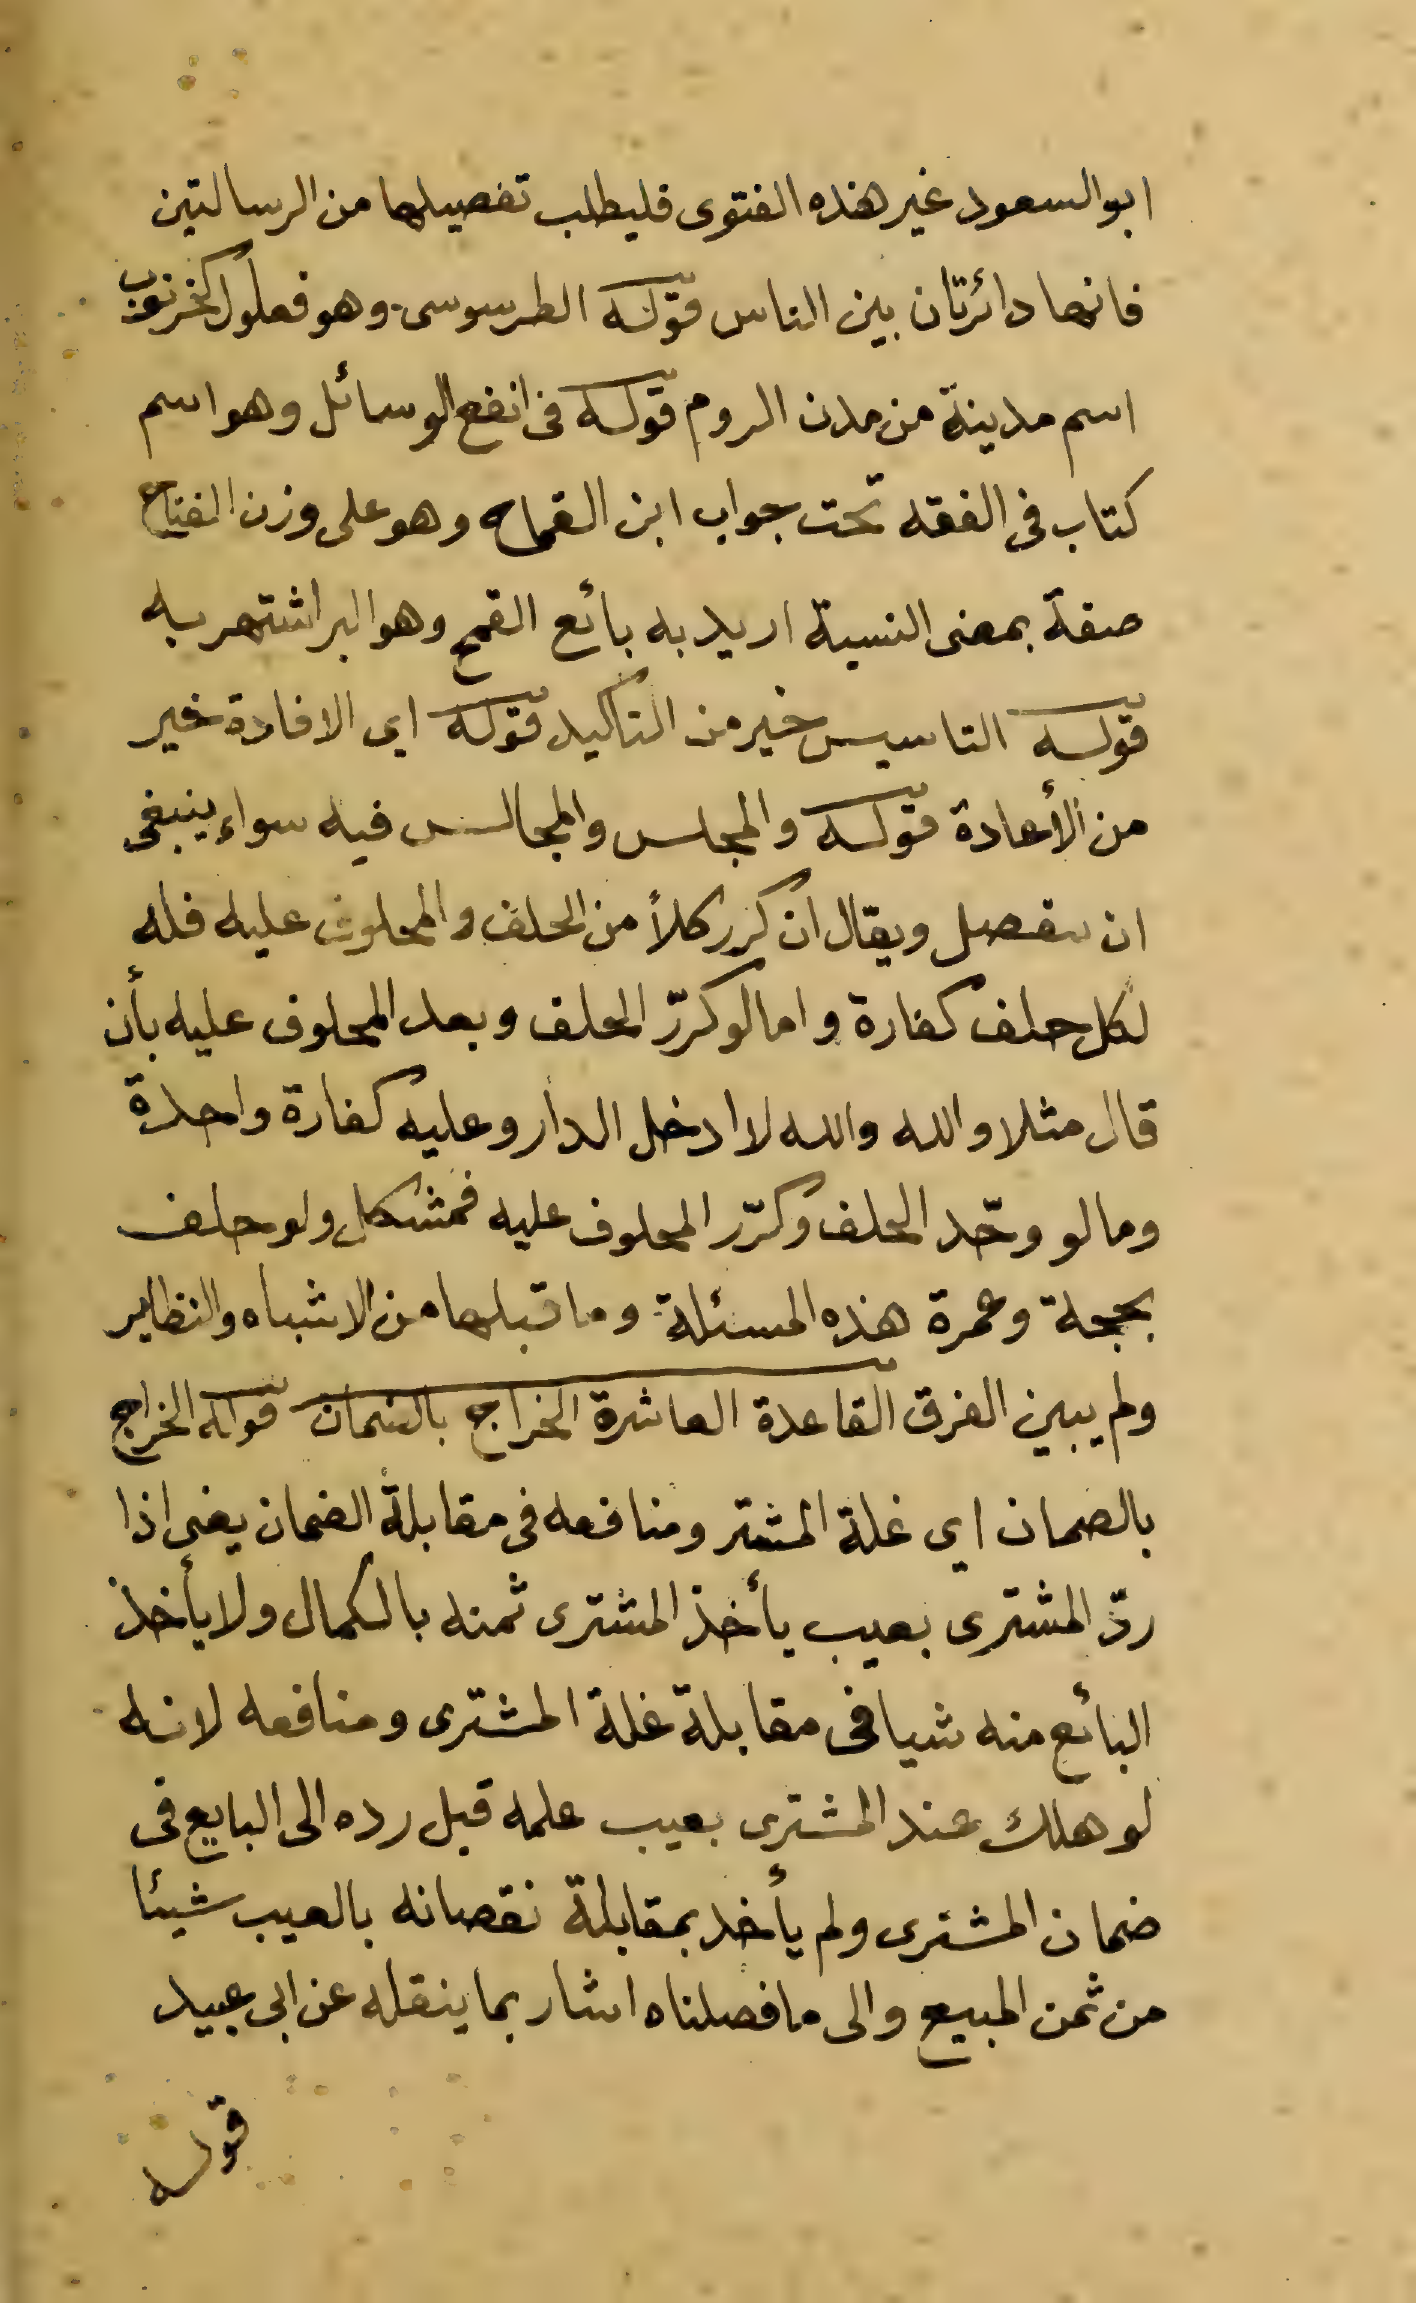 ابو السعود غير هذه الفتوى فليطلب تفصيلها من الرسالتين
فانها دائرتان بين الناس قوله الطرسوسى وهو فعلول كخرنوب
اسم مدينة من مدن الروم قوله فى انفع الوسائل وهو اسم
كتاب فى الفقه تحت جواب ابن القماح وهو على وزن الفتاح
صفة بمعنى النسبة اريد به بائع القمح وهو البر اشتهر به
قوله التاسيس خير من التاكيد قوله اى الافادة خير
من الأعادة قوله والمجلس والمجالس فيه سواء ينبغى
ان يفصل ويقال ان كرر كلاً من الحلف والمحلوف عليه فله
لكل حلف كفارة واما لو كررّ الحلف وبعد المحلوف عليه بأن
قال مثلا والله والله لا ادخل الدار وعليه كفارة واحدة
وما لو وحّد الحلف وكرّر المحلوف عليه فمشكل ولو حلف
بحجة وعمرة هذه المسئلة وما قبلها من الاشباه والنظاير
ولم يبين الفرق القاعدة العاشرة الخراج بالضمان قوله الخراج
بالضمان اى غلة المشتر ومنافعه فى مقابلة الضمان يعنى اذا
ردّ المشترى بعيب يأخذ المشترى ثمنه بالكمال ولا يأخذ
البائع منه شيا فى مقابلة غلة المشترى ومنافعه لانه
لو هلك عند المشترى بعيب علمه قبل رده الى البايع فى
ضمان المشترى ولم يأخد بمقابلة نقصانه بالعيب شيئا
من ثمن المبيع والى ما فصلناه اشار بما ينقله عن ابى عبيد
قوله